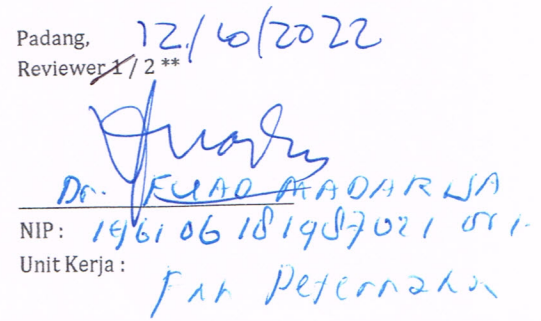 Padang, 12/10/2022
Reviewer 1 / 2 **
Dr. FUAD MADARISA
NIP : 19610618198702 1 001
Unit Kerja :
Peternakan